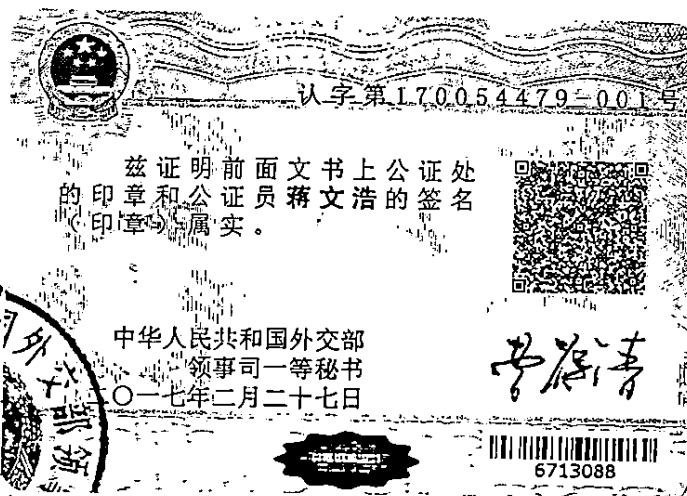 认字第170054479-001号
兹证明前面文书上公证处
的印章和公证员蒋文浩的签名
（印章）属实。
中华人民共和国外交部
领事司一等秘书
二〇一七年二月二十七日
外交部领
6713088